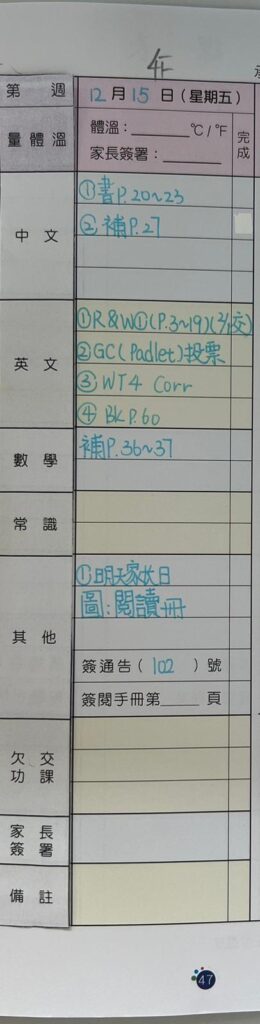 年
第 週 12月15日(星期五)
量體溫 體溫:______℃/℉ 完成
家長簽署:______
中文 ①書P.20~23
②補P.27
英文 ①R&W①(P.3~19)(2/1交)
②GC(Padlet)投票
③WT4 Corr
④BK P.60
數學 補P.36~37
常識
其他 ①明天家長日
圖:閱讀冊
簽通告(102)號
簽閱手冊第____頁
欠交功課
家長簽署
備註
47